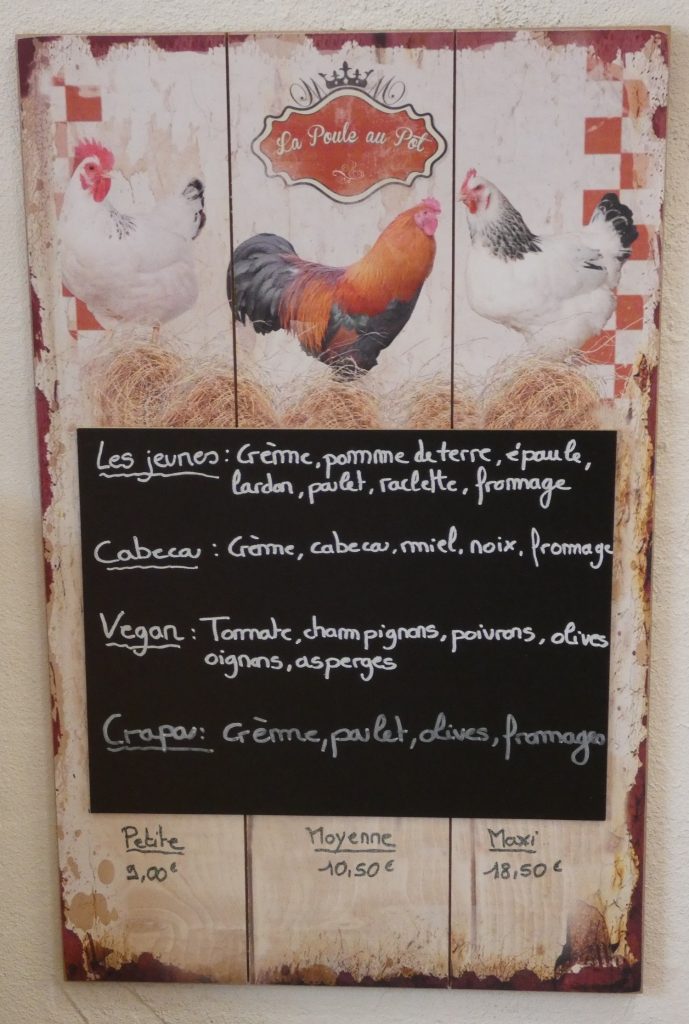 La Poule au Pot
Les jeunes : Crème, pomme de terre, épaule,
lardon, poulet, raclette, fromage
Cabeca : Crème, cabeca, miel, noix, fromage
Vegan : Tomate, champignons, poivrons, olives
oignons, asperges
Crapa : Crème, poulet, olives, fromages
Petite Moyenne Maxi
9,00€ 10,50€ 18,50€